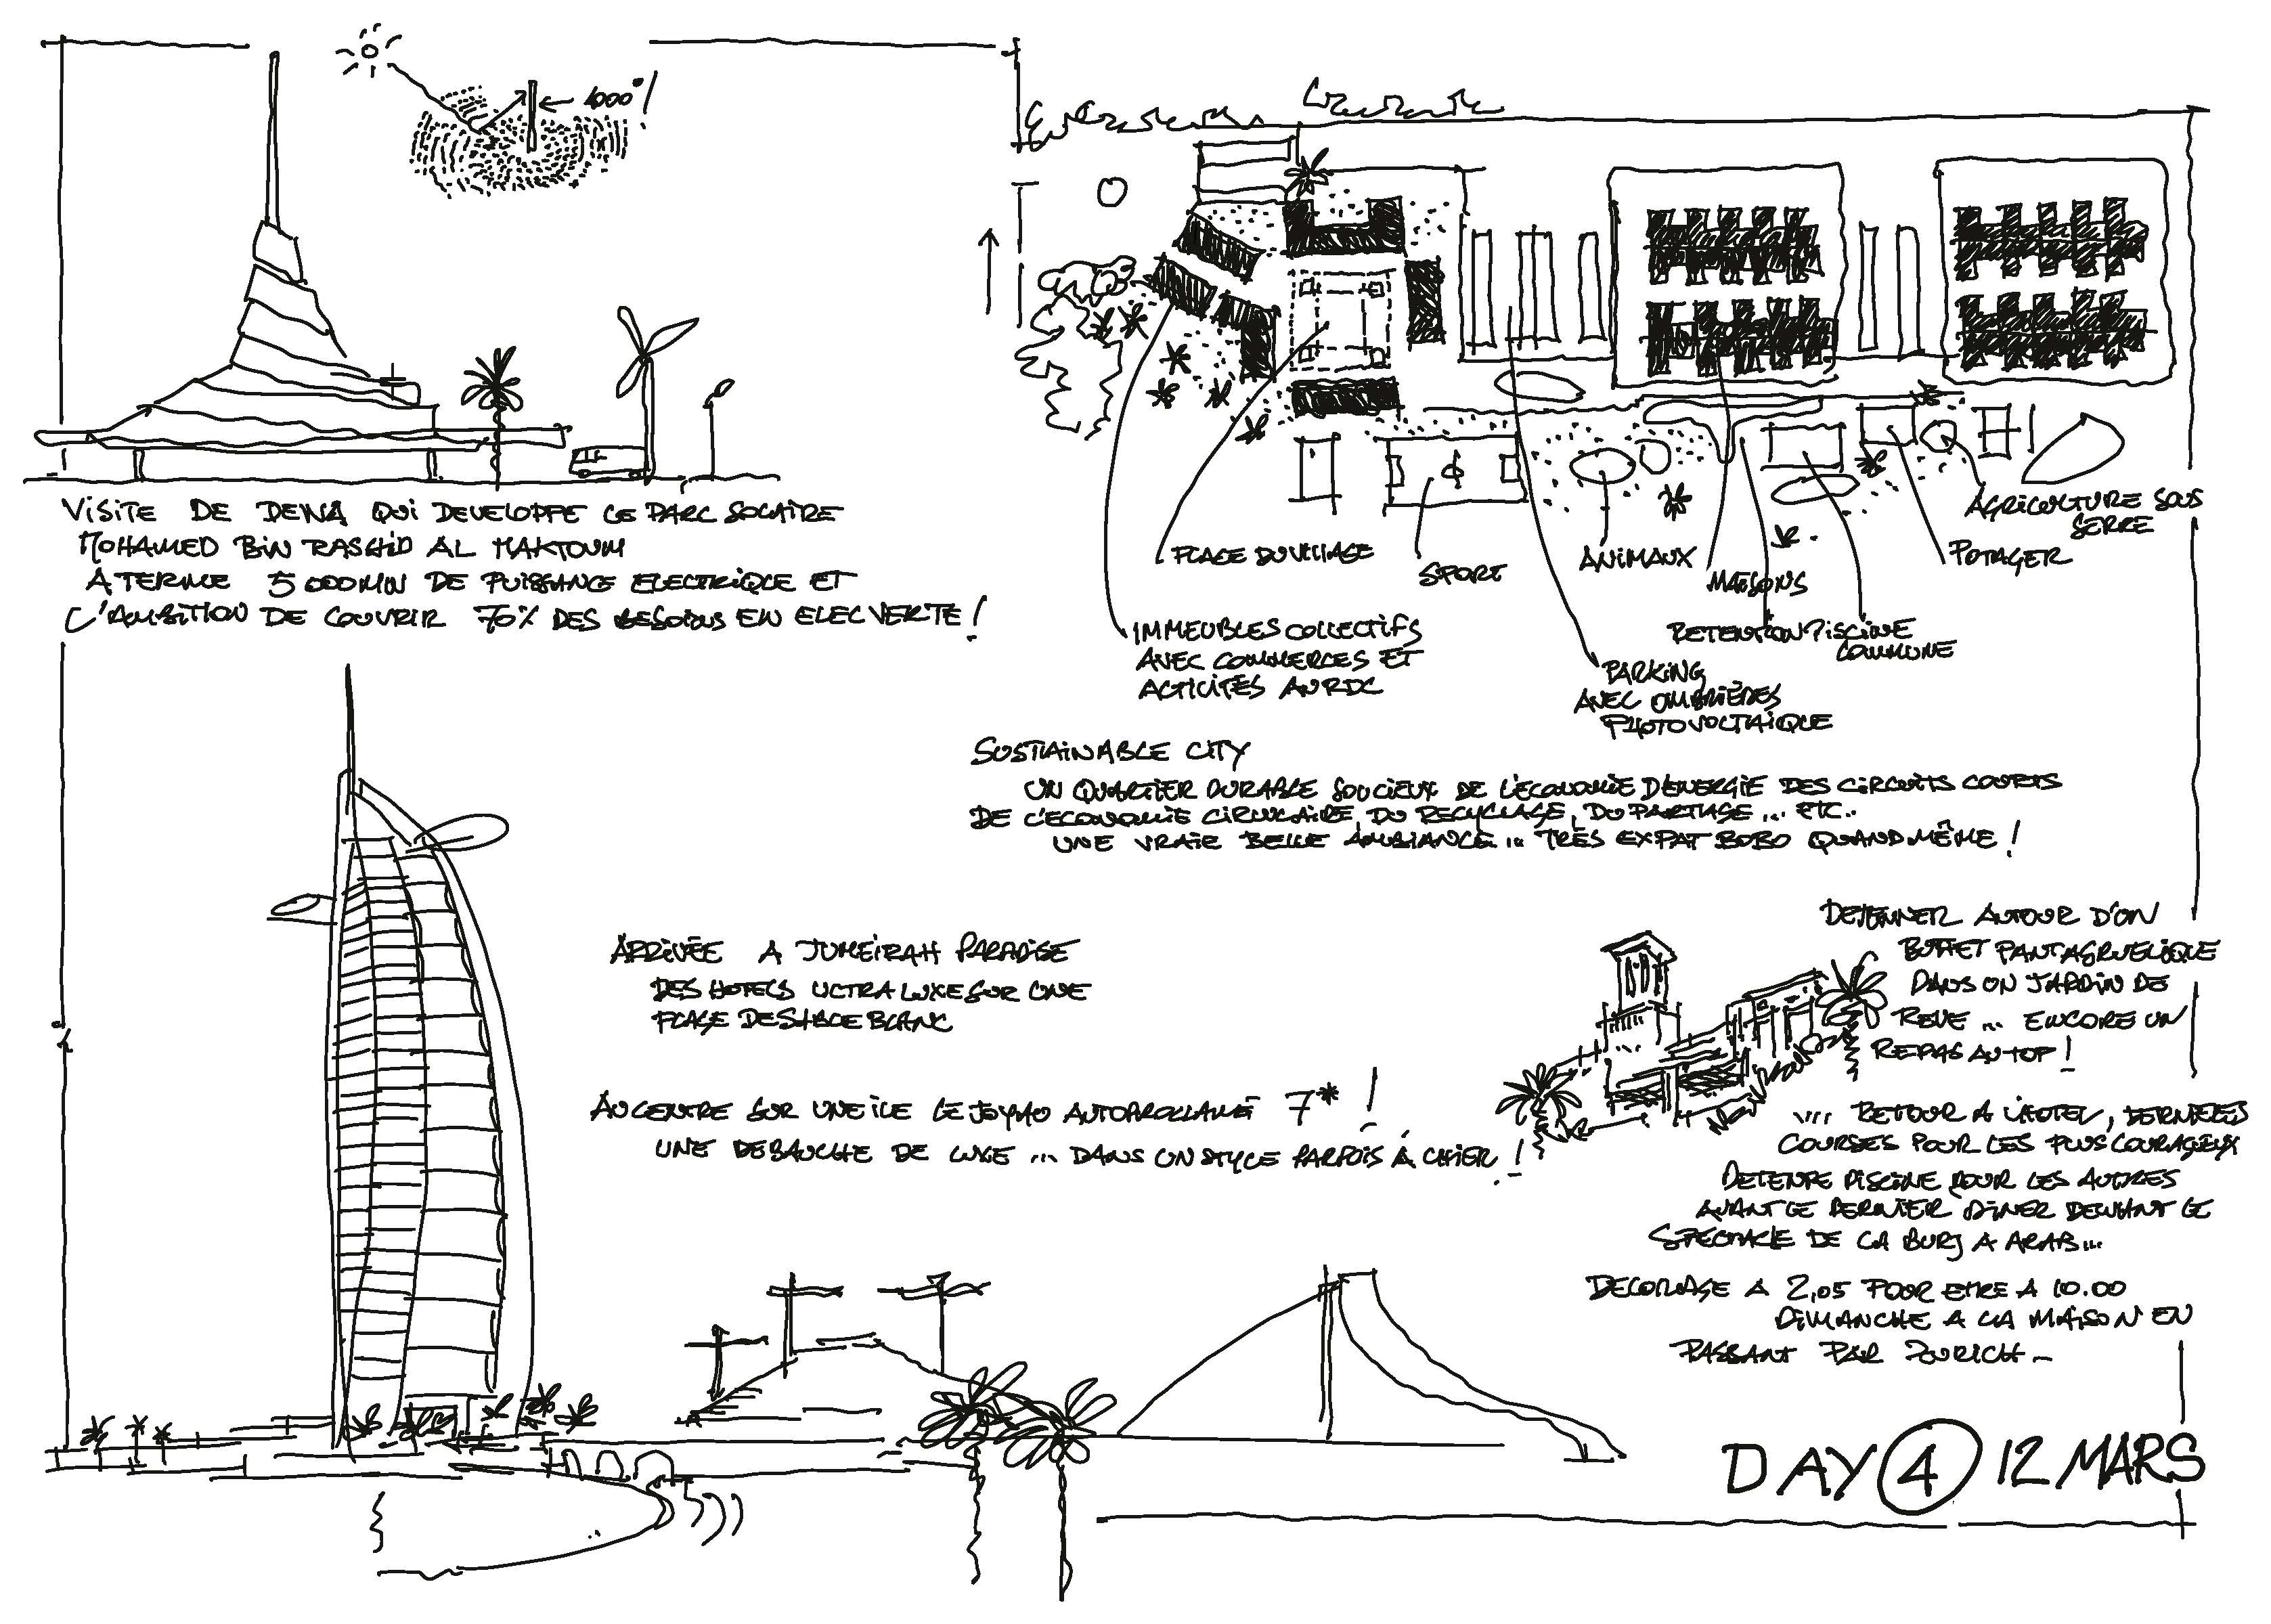 1000°
VISITE DE DEWA QUI DEVELOPPE LE PARC SOLAIRE
MOHAMED BIN RASCHID AL MAKTOUM
A TERME 5000MW DE PUISSANCE ELECTRIQUE ET
L'AMBITION DE COUVRIR 70% DES BESOINS EN ELEC VERTE !
PLACE DU VILLAGE
SPORT
ANIMAUX
MAISONS
AGRICULTURE SOUS
SERRE
POTAGER
IMMEUBLES COLLECTIFS
AVEC COMMERCES ET
ACTIVITÉS AU RDC
RETENTION PISCINE
COMMUNE
PARKING
AVEC OMBRIÈRES
PHOTOVOLTAIQUE
SUSTAINABLE CITY
UN QUARTIER DURABLE SOUCIEUX DE L'ECONOMIE D'ENERGIE DES CIRCUITS COURTS
DE L'ECONOMIE CIRCULAIRE, DU RECYCLAGE, DU PARTAGE ... ETC..
UNE VRAIE BELLE AMBIANCE... TRÈS EXPAT BOBO QUAND MÊME !
ARRIVÉE A JUMEIRAH PARADISE
DES HOTELS ULTRA LUXE SUR UNE
PLAGE DE SABLE BLANC
AU CENTRE SUR UNE ILE LE JOYAU AUTOPROCLAMÉ 7* !
UNE DEBAUCHE DE LUXE ... DANS UN STYLE PARFOIS À CHIER !
DEJEUNER AUTOUR D'UN
BUFFET PANTAGRUELIQUE
DANS UN JARDIN DE
REVE ... ENCORE UN
REPAS AU TOP !
.... RETOUR A L'HOTEL, DERNIERES
COURSES POUR LES PLUS COURAGEUX
DETENTE PISCINE POUR LES AUTRES
AVANT LE DERNIER DINER DEVANT LE
SPECTACLE DE LA BURJ A ARAB...
DECOLLAGE A 2,05 POUR ETRE A 10.00
DIMANCHE A LA MAISON EN
PASSANT PAR ZURICH -
DAY 4 12 MARS